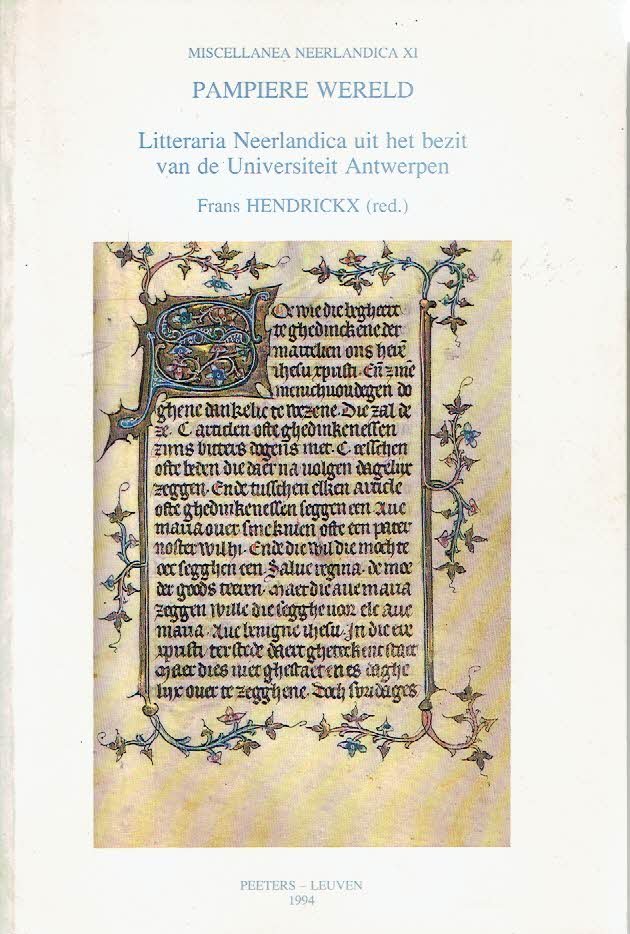 MISCELLANEA NEERLANDICA XI
PAMPIERE WERELD
Litteraria Neerlandica uit het bezit
van de Universiteit Antwerpen
Frans HENDRICKX (red.)
Se wie die begheert
te ghedinckene der
martelien ons here
ihesu xpristi. En zine
menichuondegen do
ghene dankelic te wezene. Die zal de
ze. C. articlen ofte ghedinkenessen
zijns bitters dogens met. C. eesschen
ofte beden die daer na uolgen dagelijx
zeggen. Ende tusschen elken article
ofte ghedinkenessen seggen een Aue
maria ouer sine knien ofte een pater
noster wilhi. Ende die wil die mach te
oec segghen een Salue regina. de moe
der goods teeren. Maer die aue maria
zeggen wille die segghe uoor elc aue
maria. Aue benigne ihesu. In die ere
xpristi ter stede daert gheteekent staet
Maer dies niet ghestaet en es daghe
lijx ouer te zegghene. Doch svridages
PEETERS – LEUVEN
1994